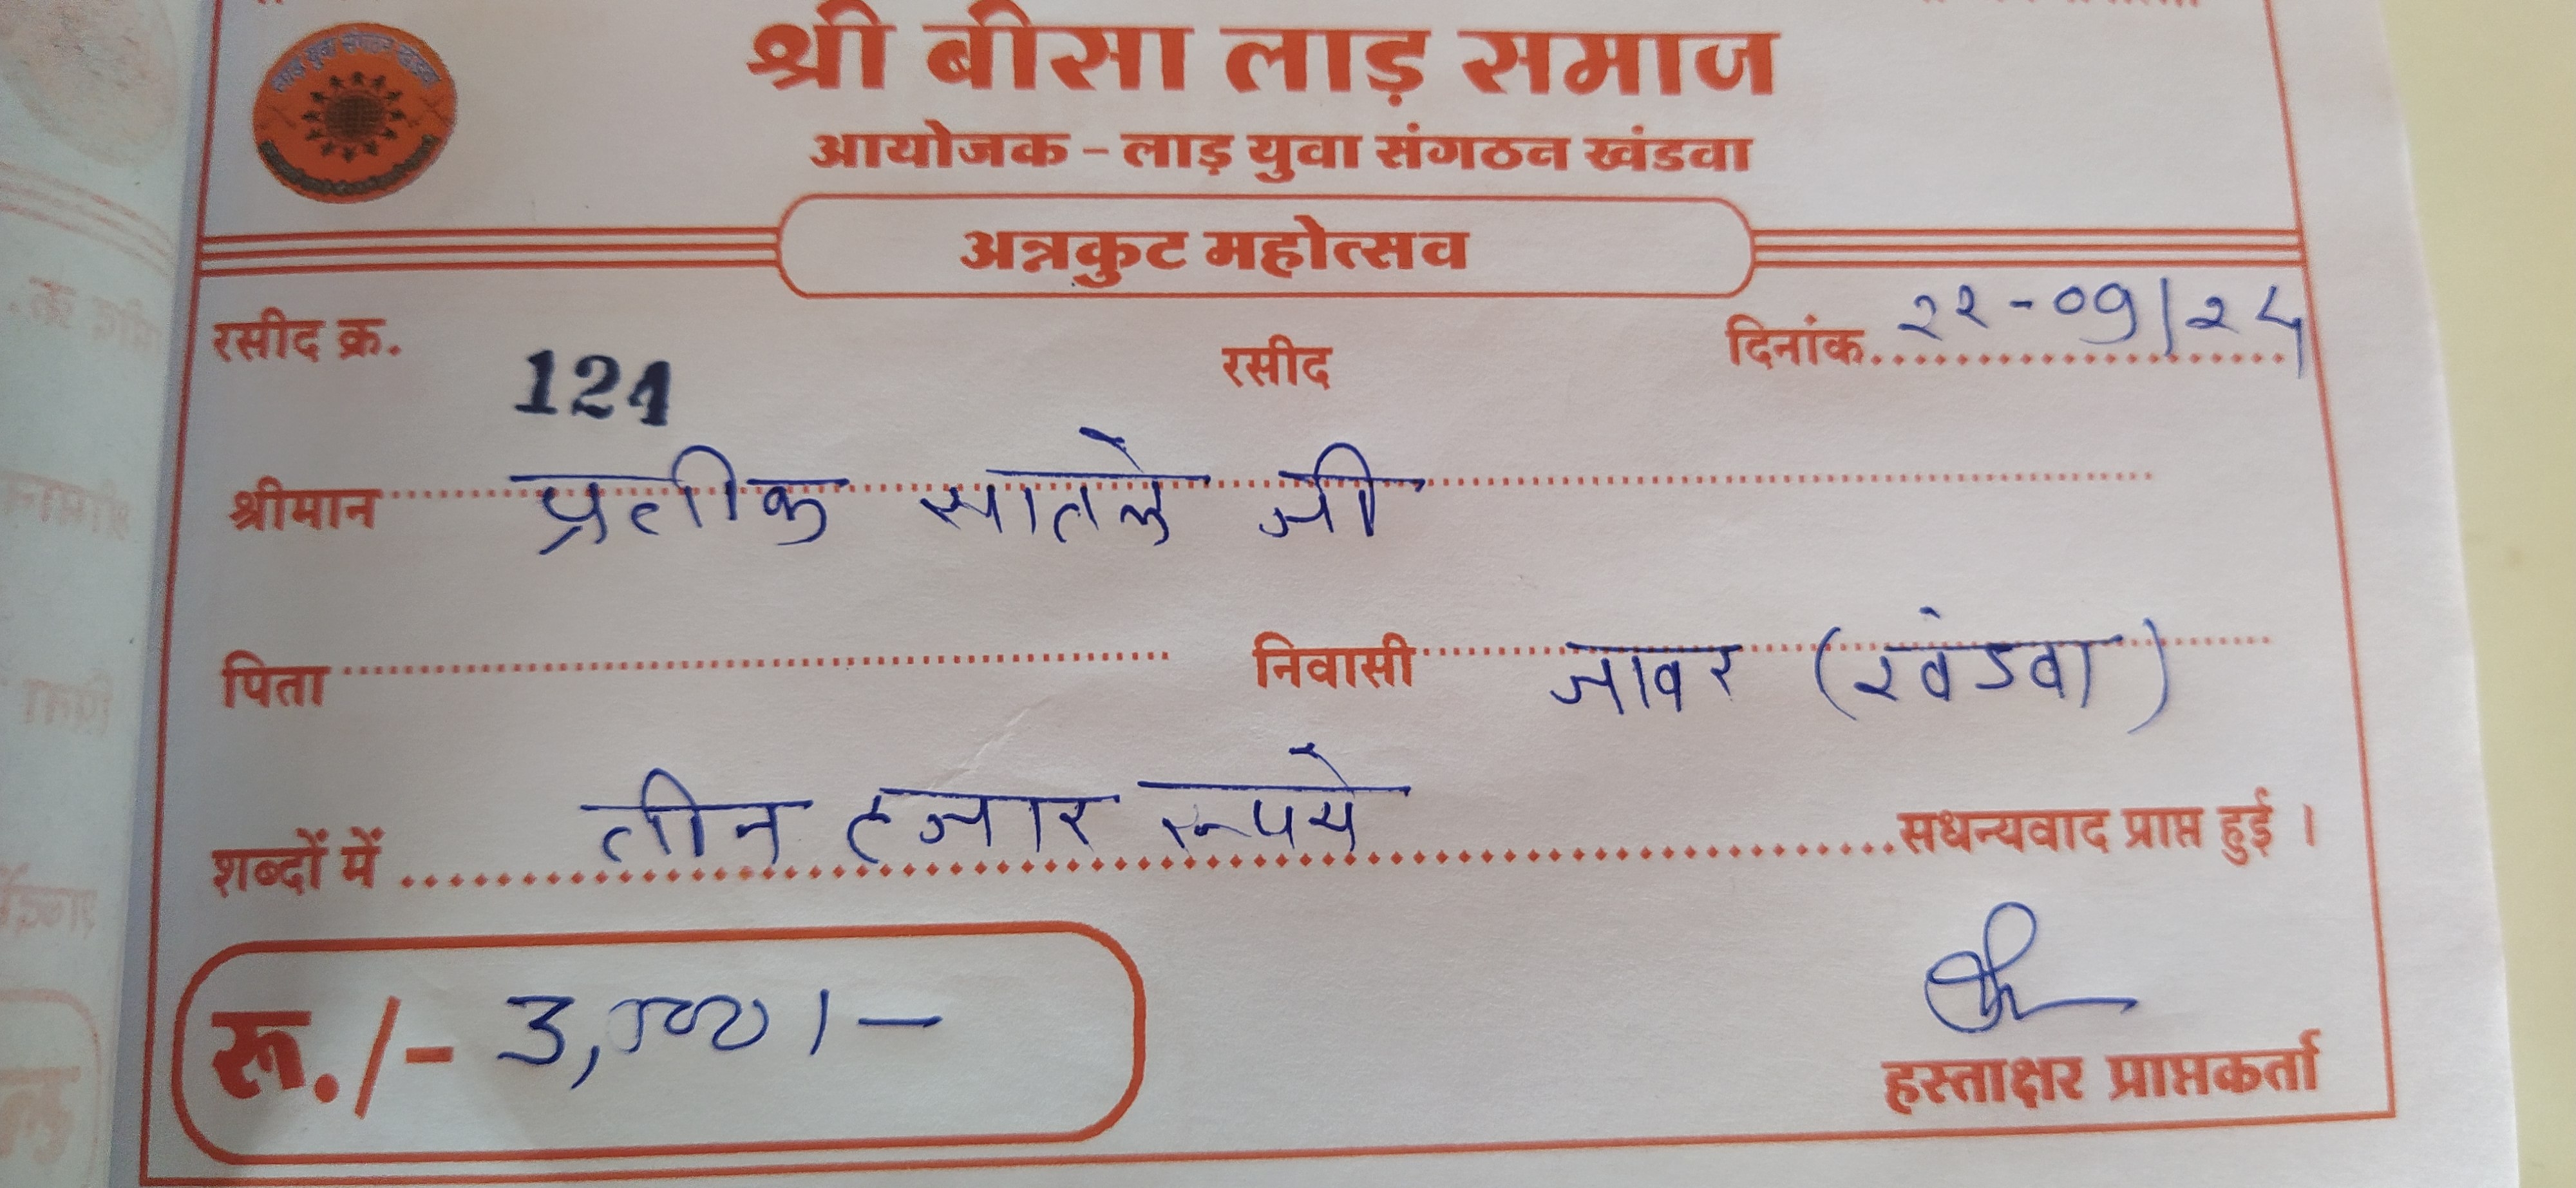 श्री बीसा लाड़ समाज
आयोजक - लाड़ युवा संगठन खंडवा
अन्नकुट महोत्सव
रसीद क्र. 121 रसीद दिनांक 22-09/25
श्रीमान प्रतीक सातले जी
पिता निवासी जावर (खंडवा)
शब्दों में तीन हजार रूपये सधन्यवाद प्राप्त हुई ।
रू./- 3,000/-
हस्ताक्षर प्राप्तकर्ता